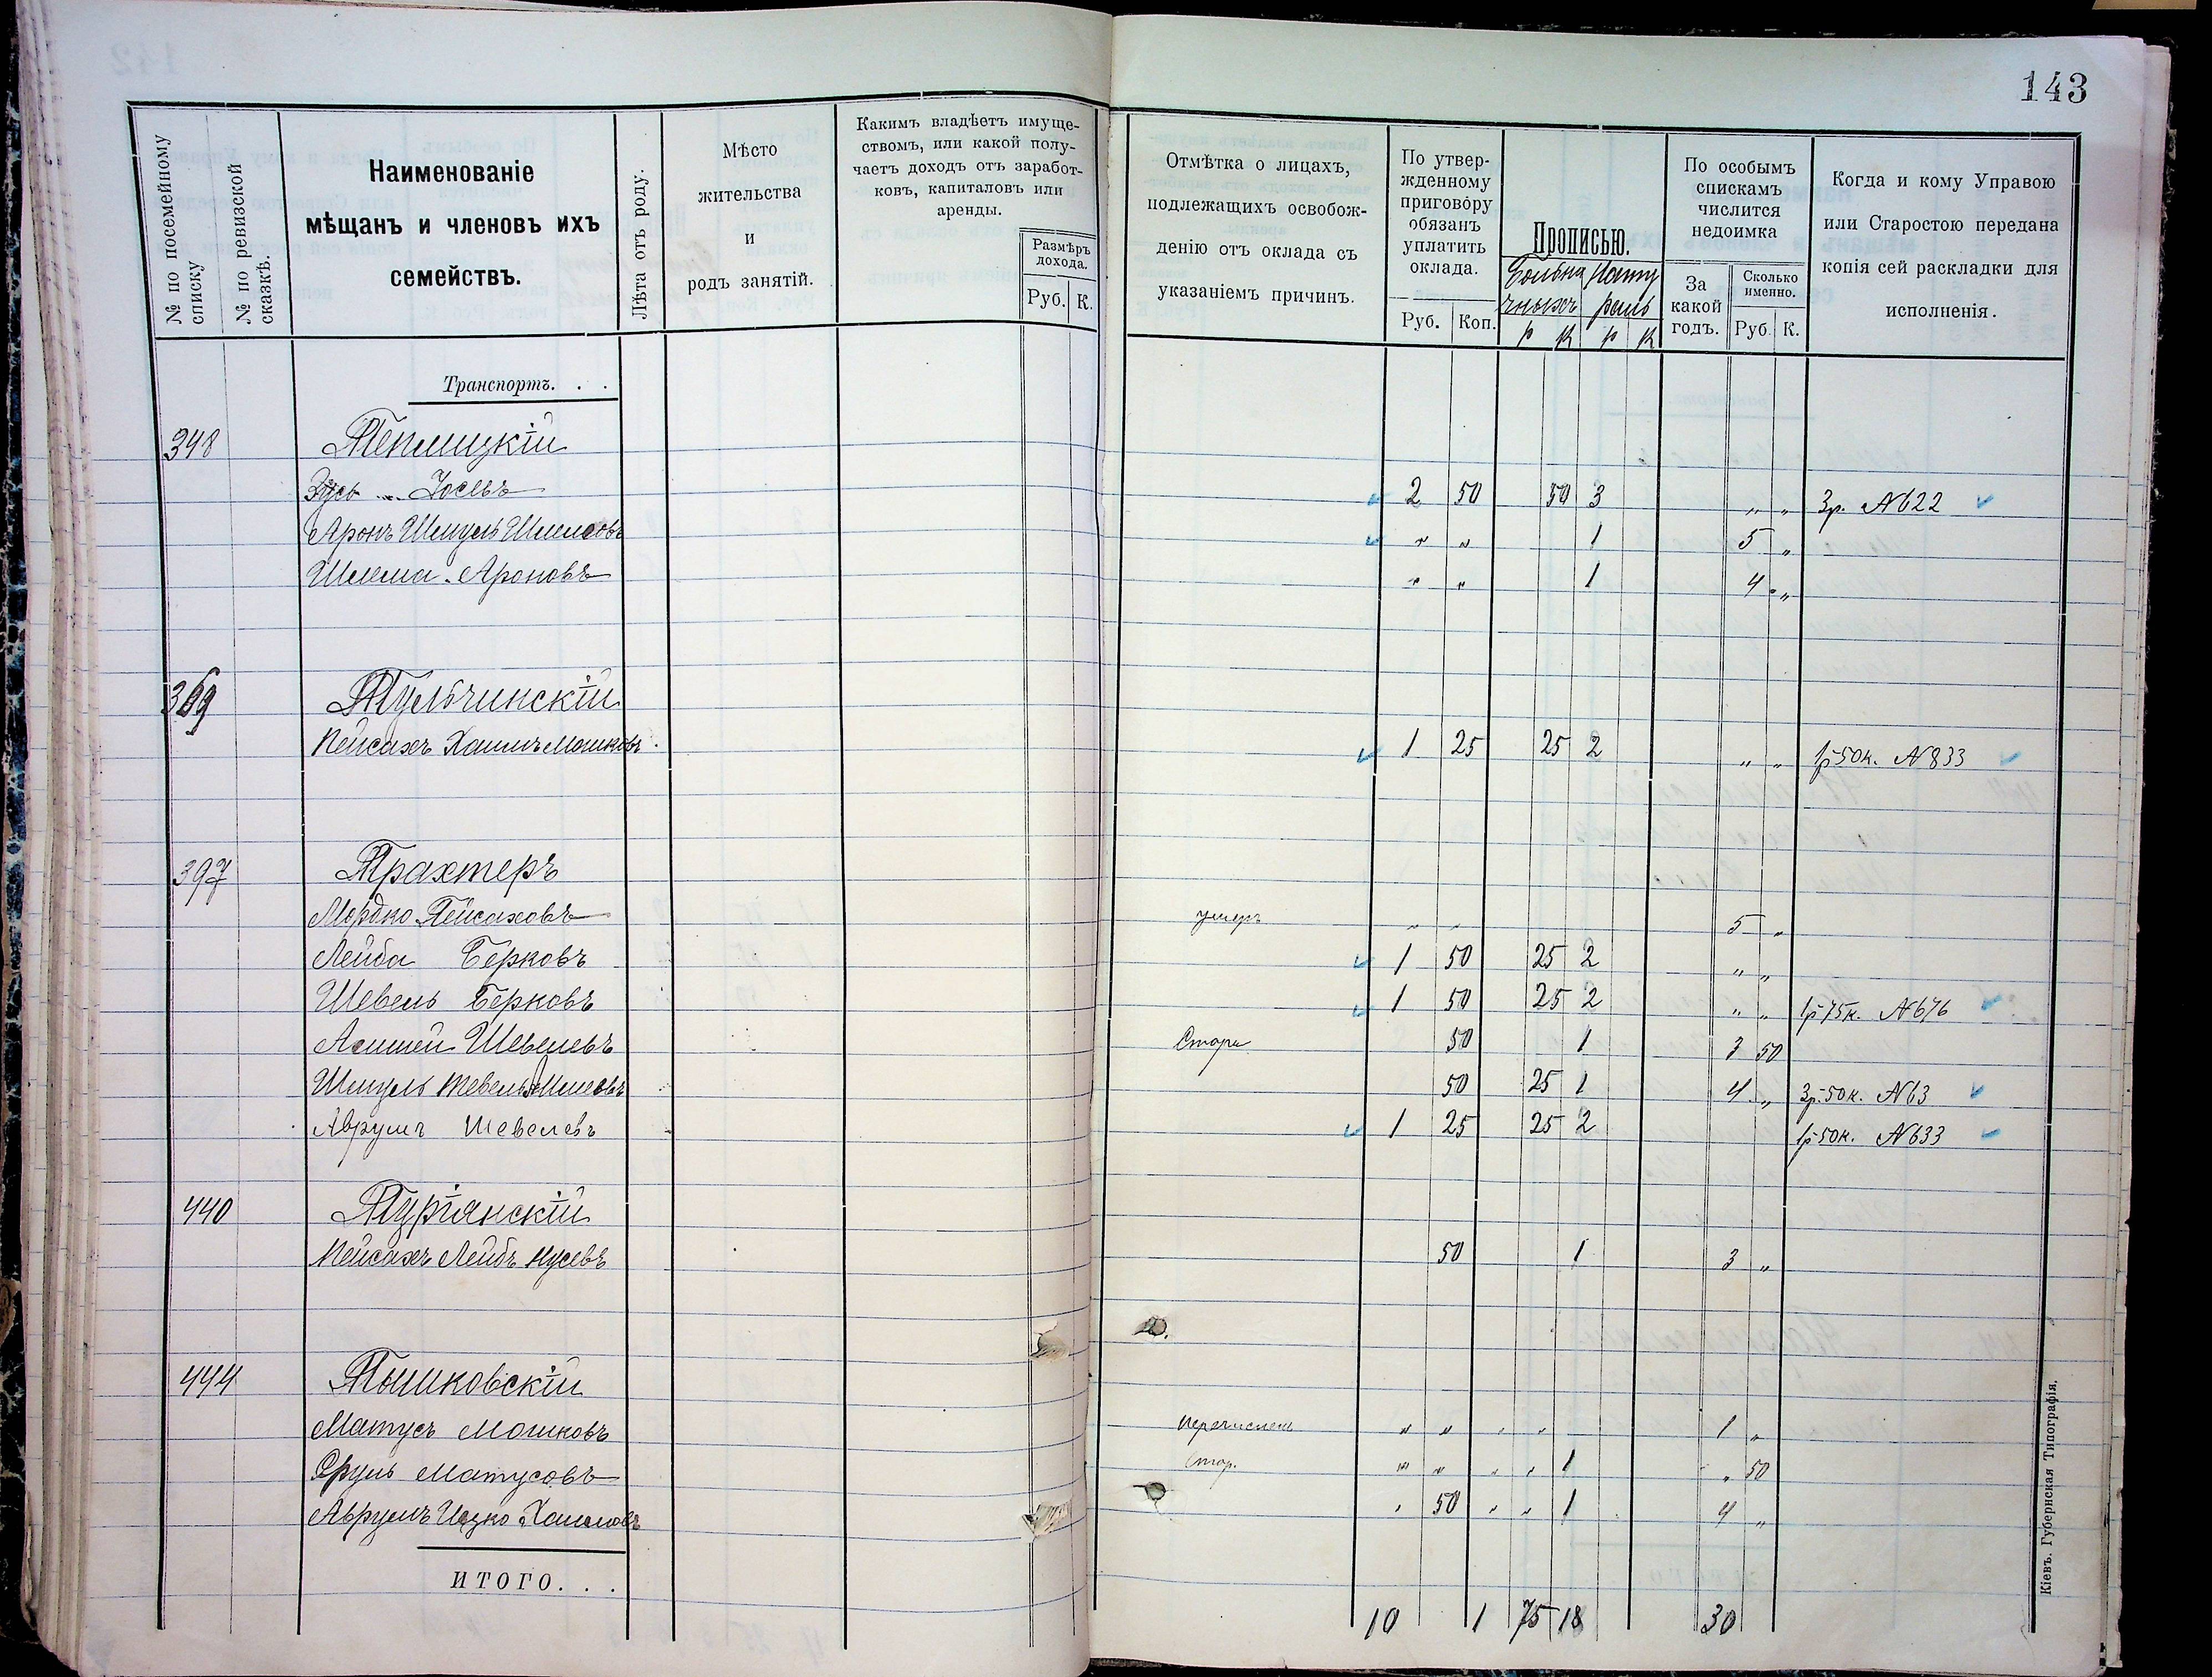 143
№ по посемейному списку
№ по ревизской сказкѣ.
Наименованіе
мѣщанъ и членовъ ихъ
семействъ.
Лѣта отъ роду.
Мѣсто
жительства
и
родъ занятій.
Какимъ владѣетъ имуще-
ствомъ, или какой полу-
чаетъ доходъ отъ заработ-
ковъ, капиталовъ или
аренды.
Размѣръ
дохода.
Руб. К.
Отмѣтка о лицахъ,
подлежащихъ освобож-
денію отъ оклада съ
указаніемъ причинъ.
По утвер-
жденному
приговору
обязанъ
уплатить
оклада.
Руб. Коп.
Прописью.
р к р к
По особымъ
спискамъ
числится
недоимка
За
какой
годъ.
Сколько
именно.
Руб. К.
Когда и кому Управою
или Старостою передана
копія сей раскладки для
исполненія.
Транспортъ. . .
348 Теплицкій
Зусь Іосевъ 2 50 50 3 " " 3р. №622
Аронъ Шмуль Шлемовъ " " 1 5 "
Шлема Ароновъ " " 1 4 "
369 Тульчинскій
Пейсахъ Хаимъ Мошковъ 1 25 25 2 " " 1р 50к. №833
397 Трахтеръ
Мордко Пейсаховъ умеръ " " 5 "
Лейба Берковъ 1 50 25 2 " "
Шевель Берковъ 1 50 25 2 " " 1р 75к. №676
Шевелевъ Старъ 50 1 3 50
Шмуль 50 25 1 4 " 3р. 50к. №63
Аврумъ Шевелевъ 1 25 25 2 1р 50к. №633
440 Турянскій
Пейсахъ Лейбъ Нусевъ 50 1 3 "
444 Тышковскій
Матусъ Мошковъ перечисленъ " " " " 1 "
Сруль Матусовъ Стар. " " " " 1 " 50
Аврумъ Ицко Хаимовъ " 50 " " 1 4 "
ИТОГО. . .
10 1 75 18 30
Кіевъ. Губернская Типографія.